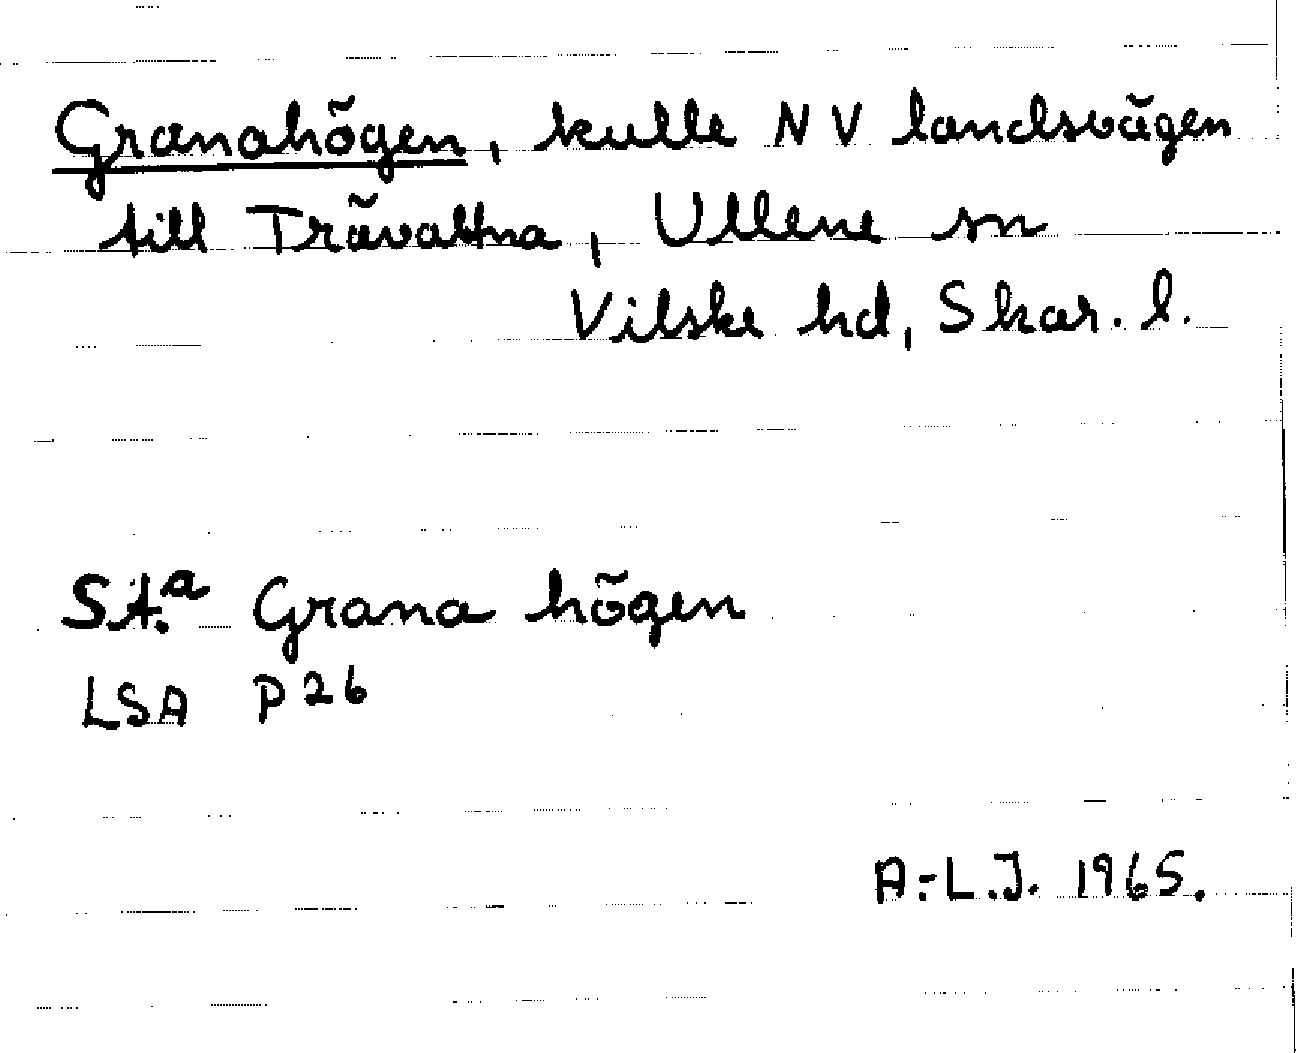 Granahögen, kulle NV landsvägen
till Trävattna, Ullene sn
Vilske hd, Skar. l.
St.a Grana högen
LSA P26
A.-L.J. 1965.